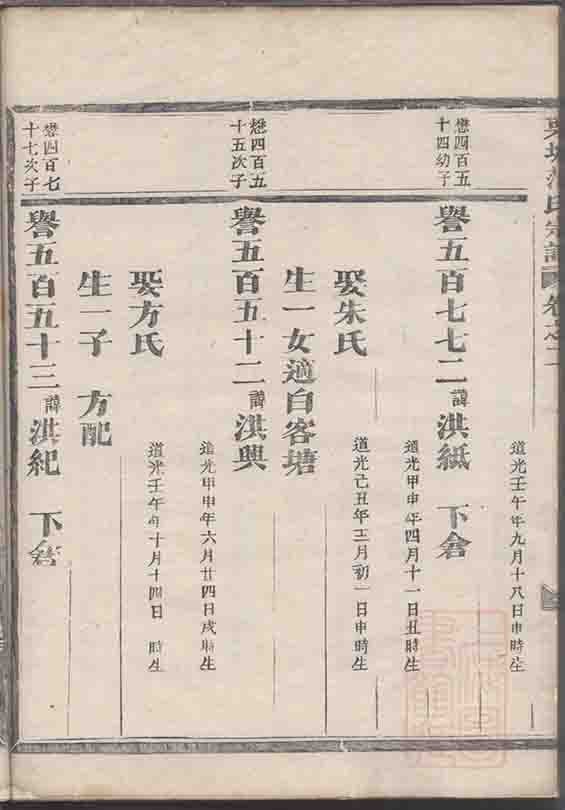 氏宗譜 卷之
道光壬午年九月十八日申時生
懋四百五
十四幼子
譽五百七七二 諱洪紙 下
道光甲申年四月十一日丑時生
娶朱氏
道光己丑年三月初一日申時生
生一女適白客塘
懋四百五
十五次子
譽五百五十二 諱洪興
道光甲申年六月廿四日戌時生
娶方氏
道光壬午年十月十四日 時生
生一子 方配
懋四百七
十七次子
譽五百五十三 諱洪紀 下